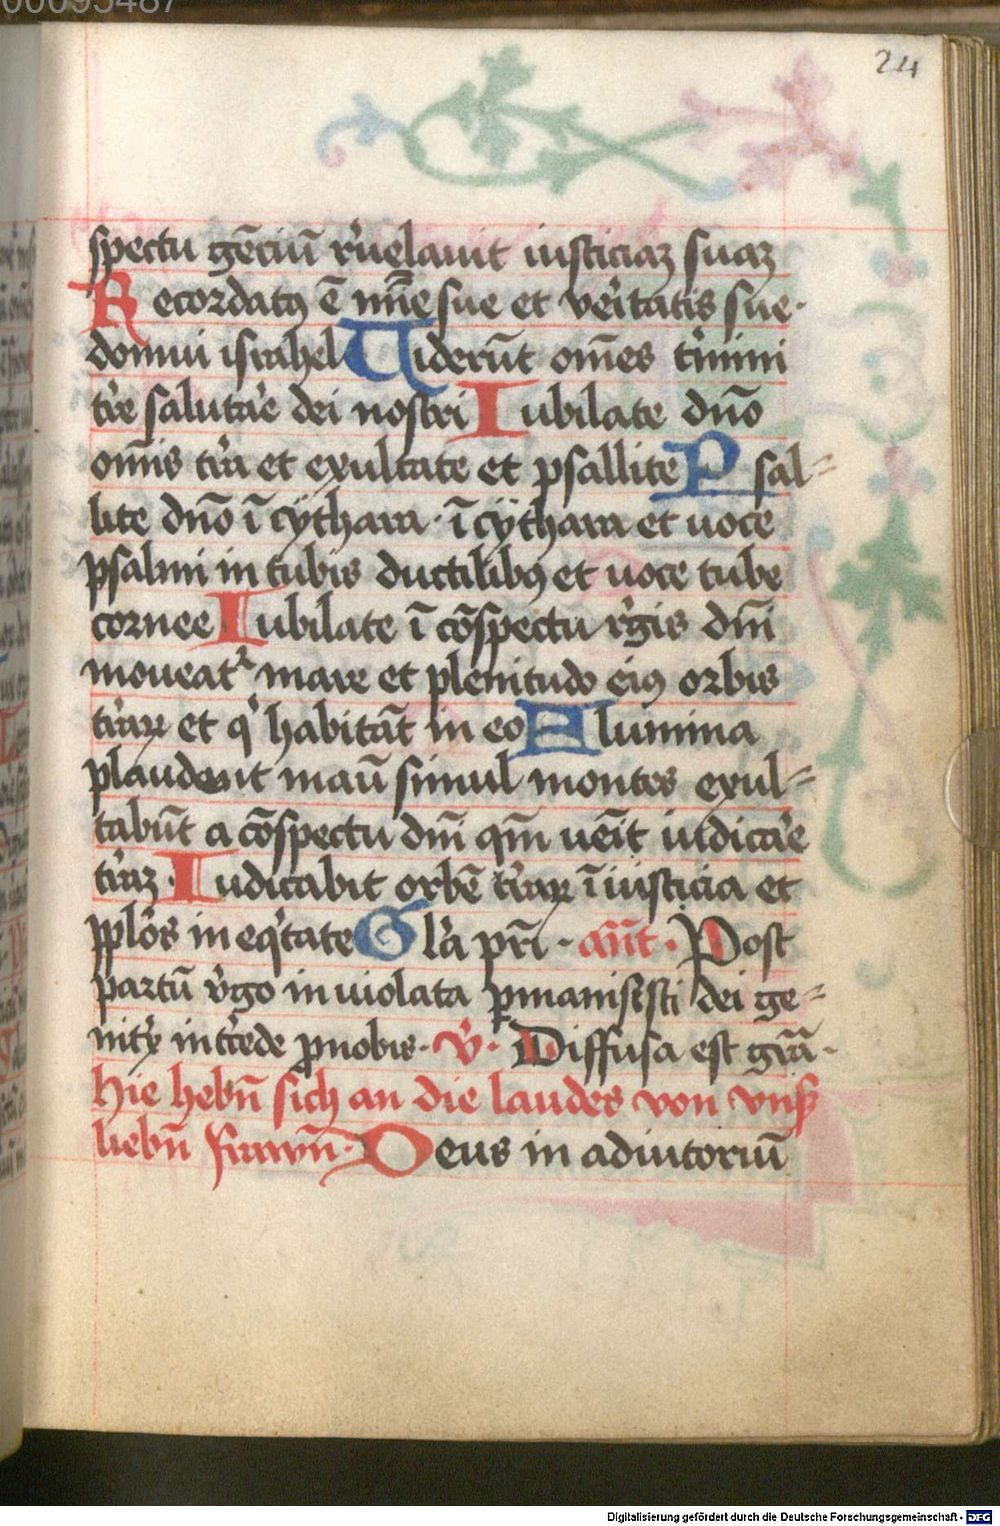 00095487
24
spectu gēciū r̓uelauit iusticiaꝫ suaꝫ
Recordatꝯ ē mīe sue et ver̓itatis sue·
domui israhel Uiderūt om̄es t̓mini
tr̓e saluta̓e dei nostri Iubilate dn̄o
om̄is tr̓a et exultate et psallite Psal⸗
lite dn̄o ī cythara· ī cÿthara et uoce
psalmi in tubis ductilibꝯ et uoce tube
cornee Iubilate ī cōspectu r̓gis dn̄i
moueatᷣ mare et plenitudo eiꝯ orbis
tr̓aꝝ et qͥ habitāt in eo Flumina
plaudent manū simul montes exul⸗
tabūt a cōspectu dn̄i qm̄ uēit iudica̓e
tr̓aꝫ· Iudicabit orbē tr̓aꝝ ī iusticia et
pplōs in eqͥtate Gl̓a pr̄i· an̄t· Post
partū v̓go inuiolata ꝑmansisti dei ge⸗
nitͥx int̓cede ꝓnobis· V̓· Diffusa est gr̄a·
Hie hebn̄ sich an die laudes von vnsß
liebn̄ frawn̄· Deus in adiutoriū
Digitalisierung gefördert durch die Deutsche Forschungsgemeinschaft - DFG